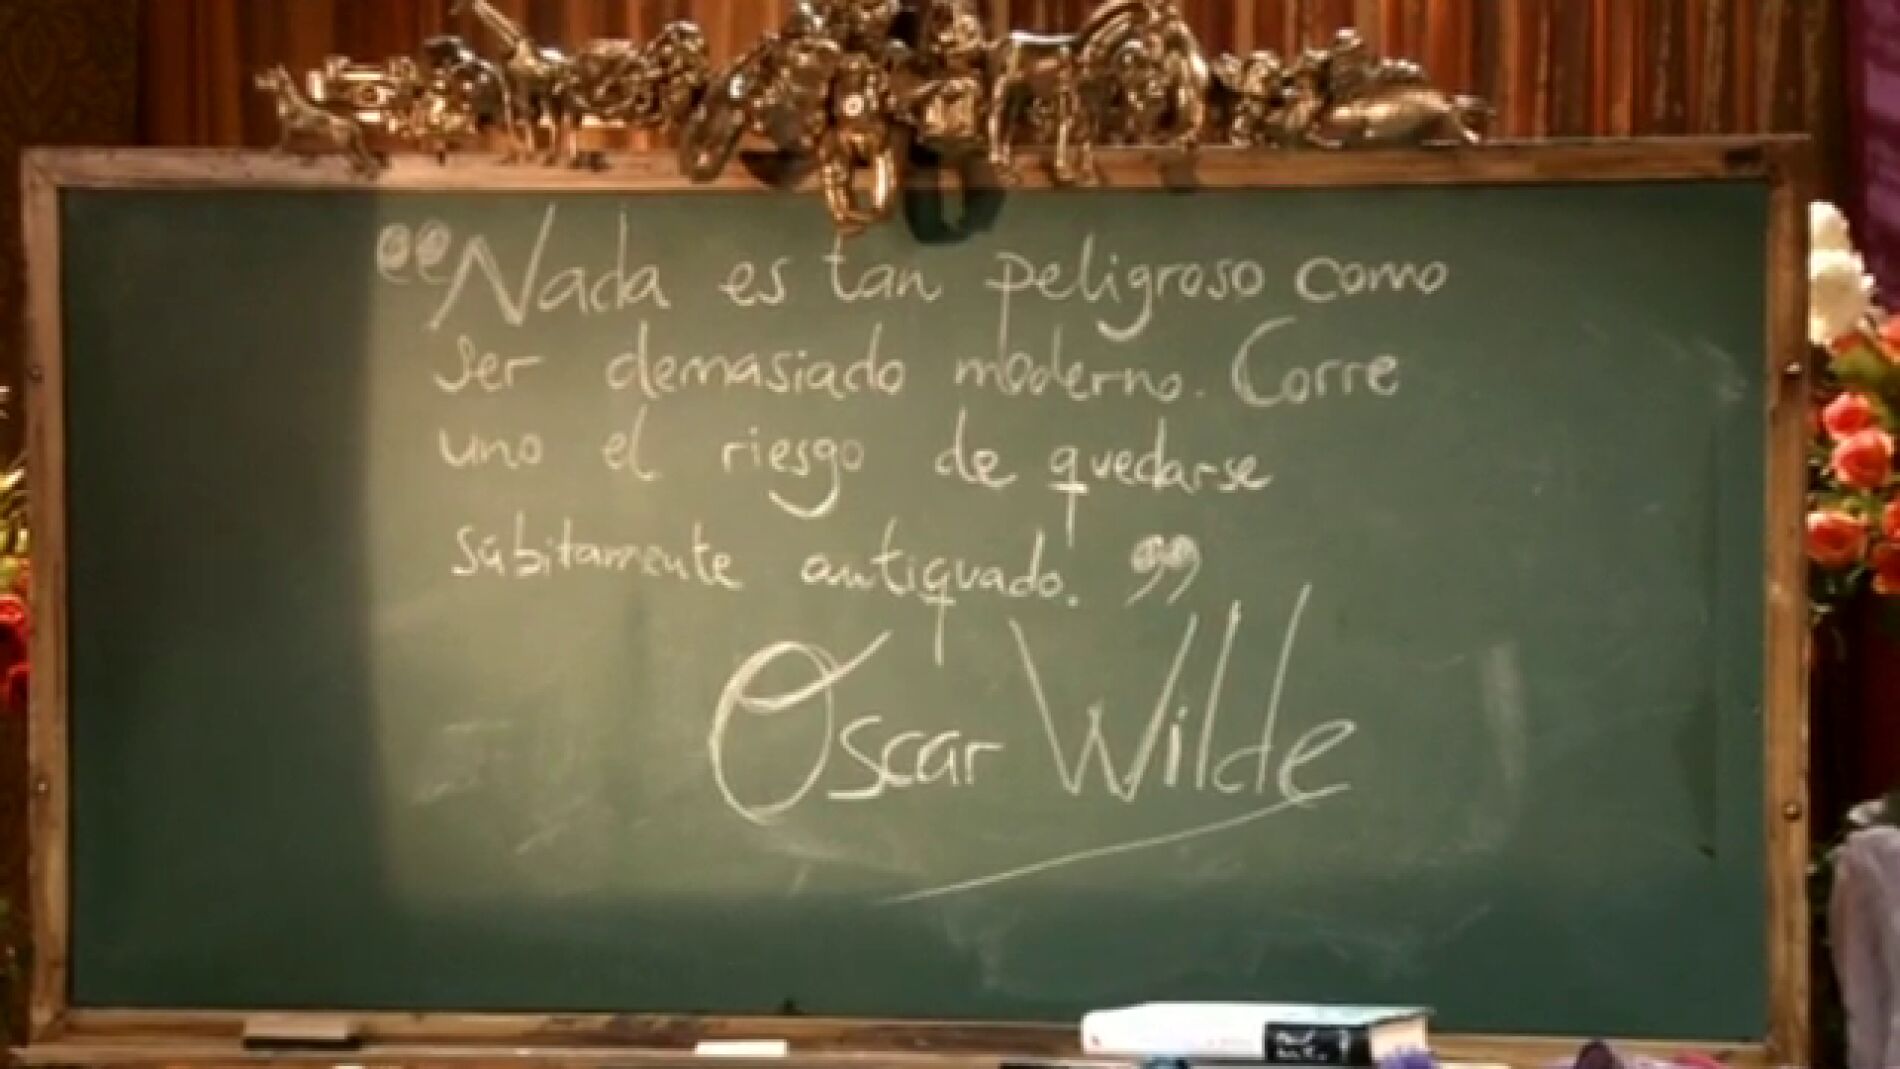 “Nada es tan peligroso como
ser demasiado moderno. Corre
uno el riesgo de quedarse
súbitamente antiquado.”
Oscar Wilde